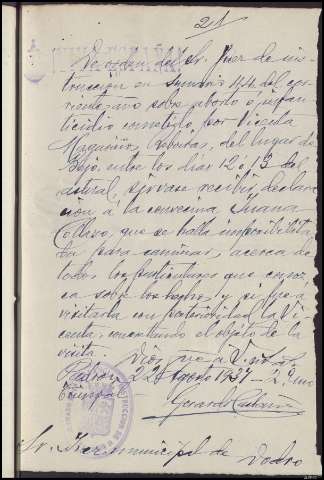 21
De orden del Sr. Juez de ins-
trucción en sumario 194 del co-
rriente año sobre aborto o infan-
ticidio cometido por Vicenta
del lugar de
entre los días 12 ó 13 del
actual, sírvase recibir declara-
ción á la convecina Juana
Collazo, que se halla imposibilita-
da para caminar, acerca de
todos los particulares que conoz-
ca sobre los hechos, y si fué á
visitarla con posterioridad la Vi-
centa, concretando el objeto de la
visita.
Dios gue á V. m. a.
Padron 22 Agosto 1937 - 2º Año
Triunfal
Gerardo
Sr. Juez municipal de Dodro